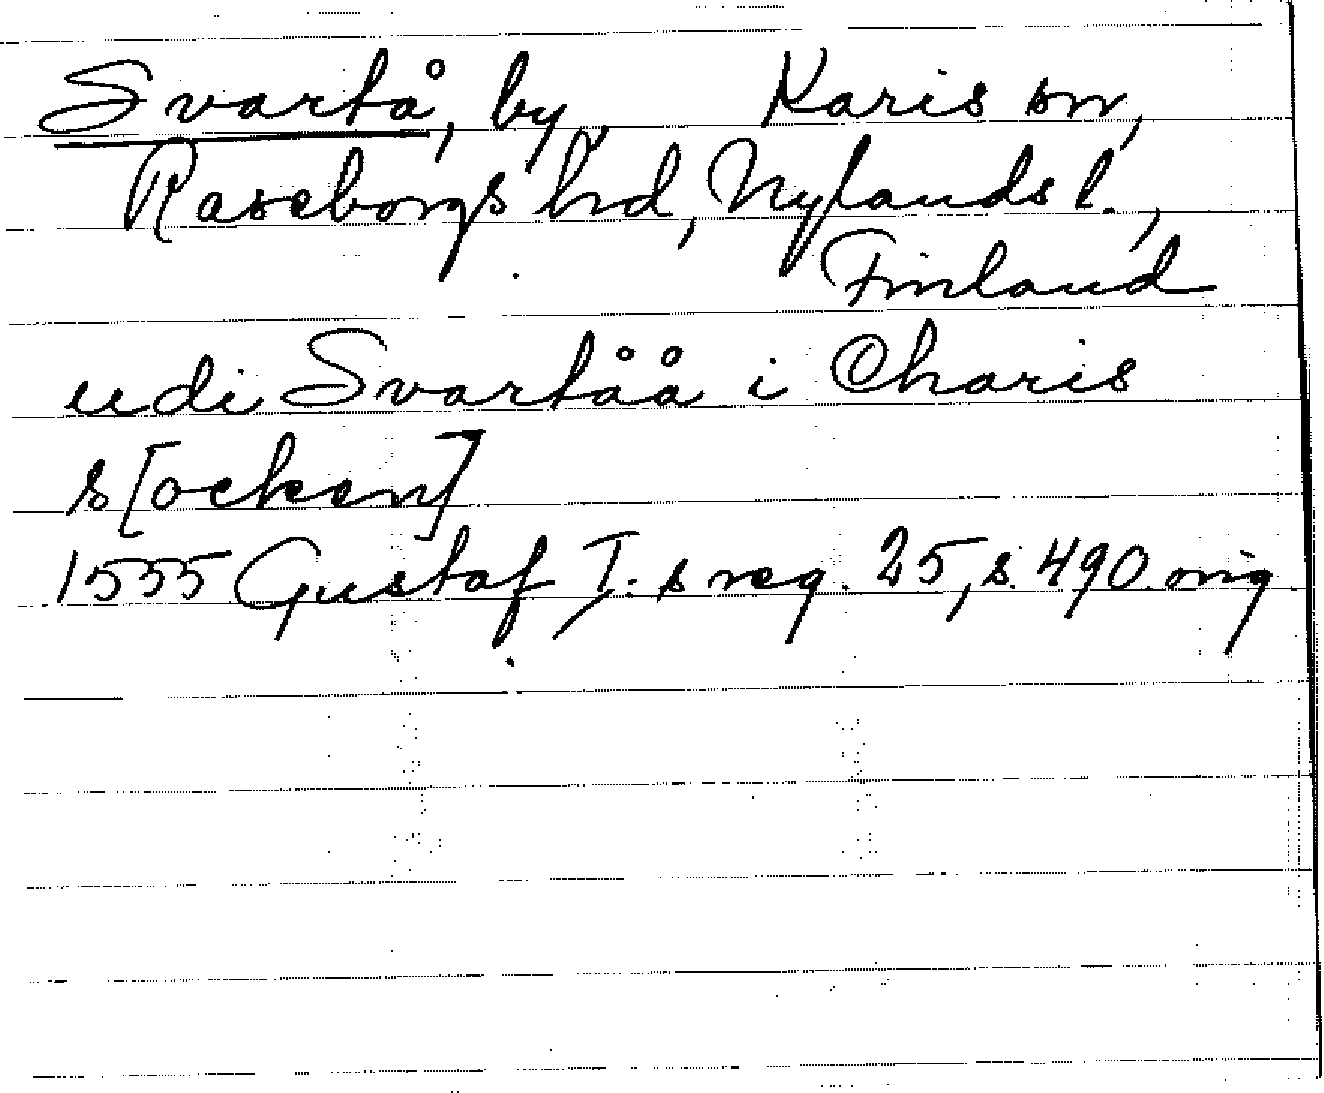 Svartå, by, Karis sn,
Raseborgs hd, Nylands l.,
Finland
udi Svartåå i Charis
s[ocken]
1555 Gustaf I:s reg. 25, s. 490 mg